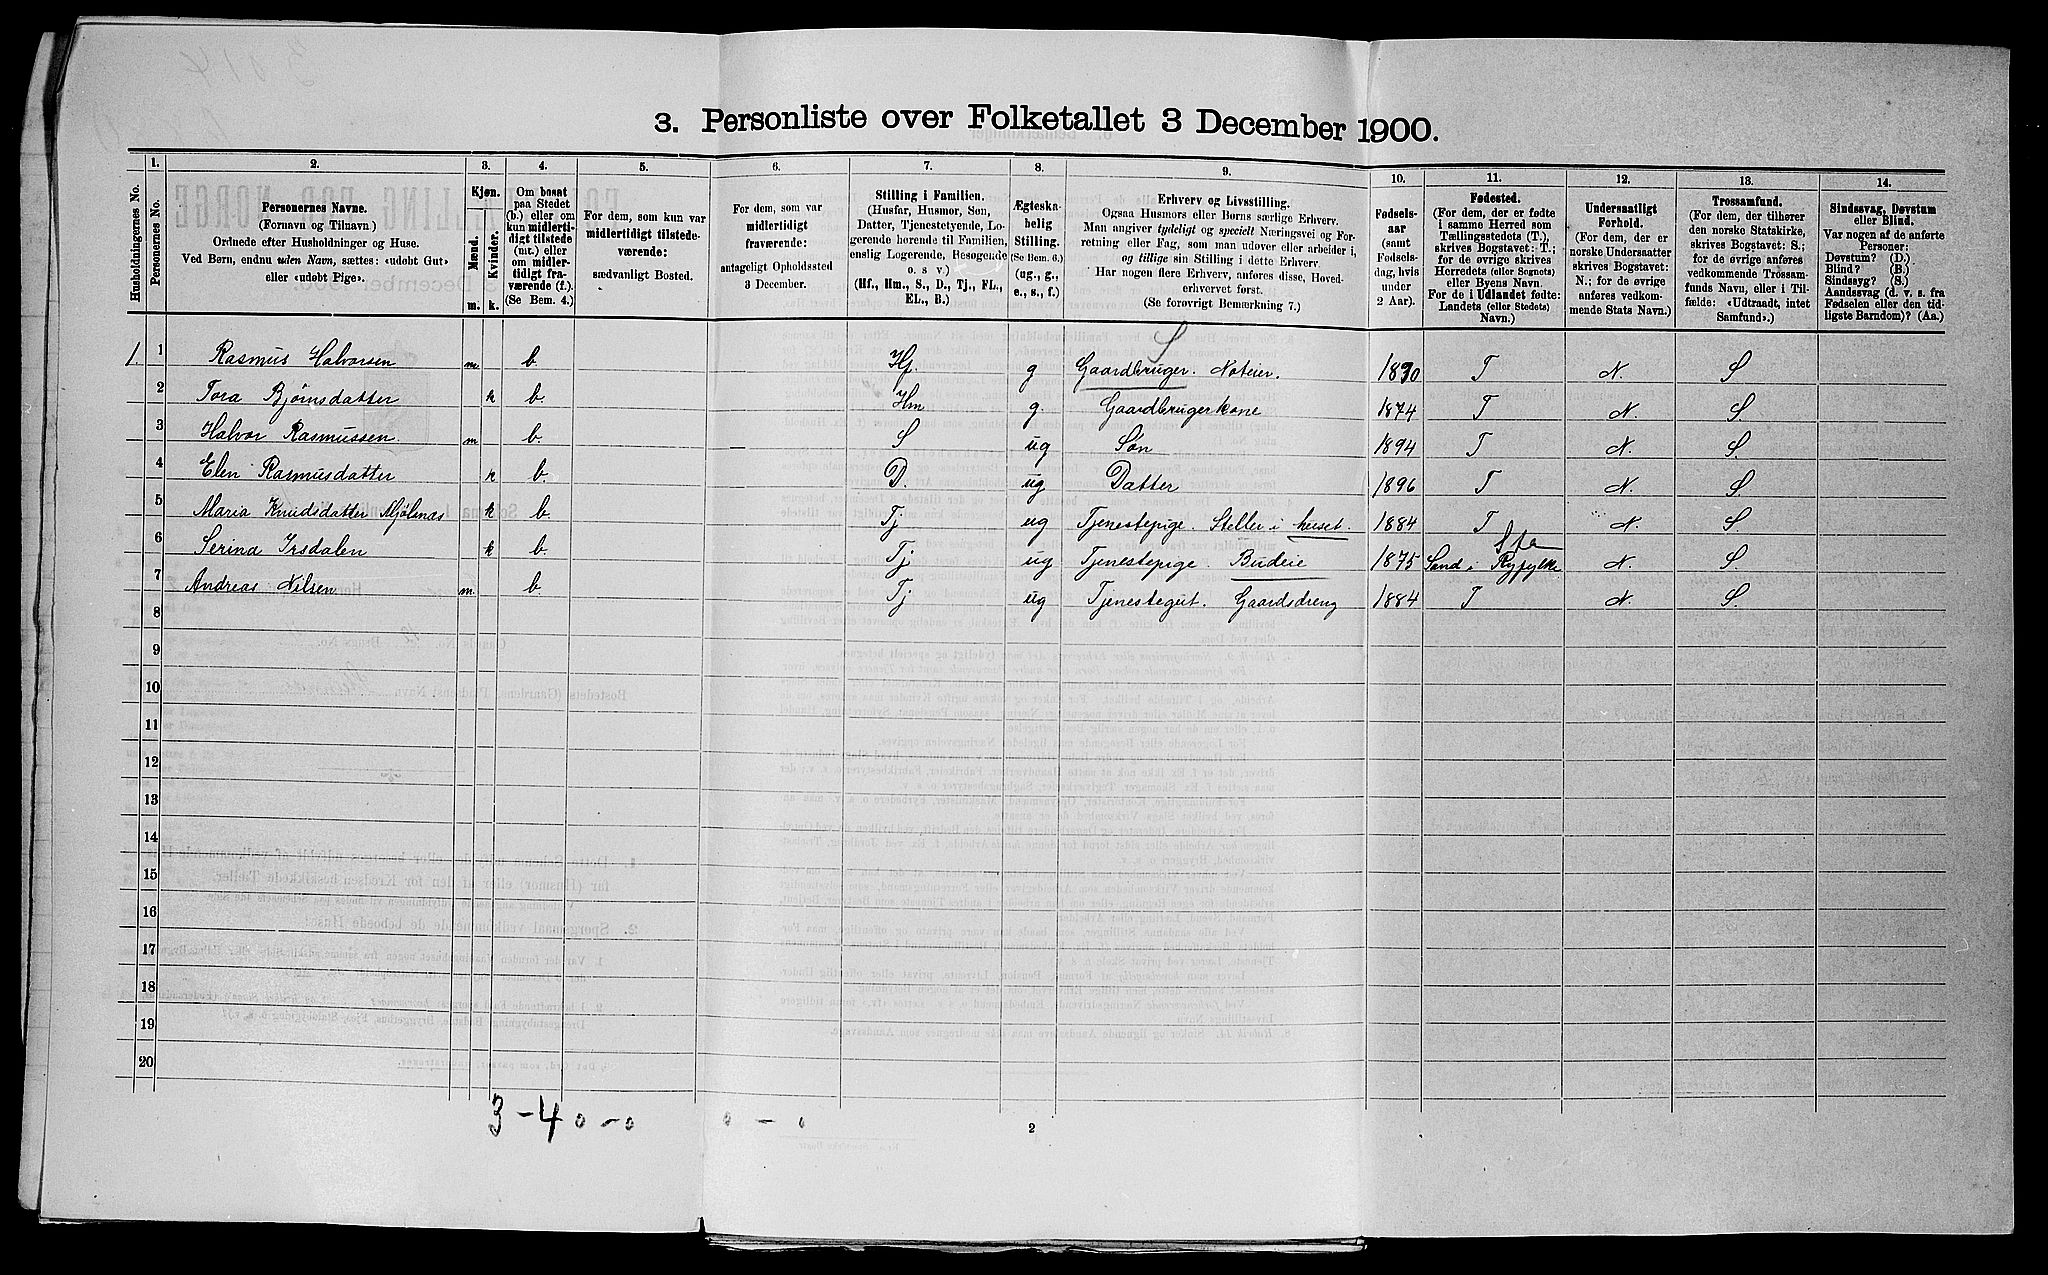 3. Personliste over Folketallet 3 December 1900.
1. 2. 3. 4. 5. 6. 7. 8. 9. 10. 11. 12. 13. 14.
Husholdningernes No.
Personernes No.
Personernes Navne.
(Fornavn og Tilnavn)
Ordnede efter Husholdninger og Huse.
Ved Børn, endnu uden Navn, sættes: «udøbt Gut»
eller «udøbt Pige».
Kjøn.
Mænd.
Kvinder.
m. k.
Om bosat
paa Stedet
(b.) eller om
kun midler-
tidigt tilstede
(mt.) eller
om midler-
tidigt fra-
værende (f.).
(Se Bem. 4.)
For dem, som kun var
midlertidigt tilstede-
værende:
sædvanligt Bosted.
For dem, som var
midlertidigt
fraværende:
antageligt Opholdssted
3 December.
Stilling i Familien.
(Husfar, Husmor, Søn,
Datter, Tjenestetyende, Lo-
gerende hørende til Familien,
enslig Logerende, Besøgende
o. s. v.)
(Hf., Hm., S., D., Tj., FL.,
EL., B.)
Ægteska-
belig
Stilling.
(Se Bem. 6.)
(ug., g.,
e., s., f.)
Erhverv og Livsstilling.
Ogsaa Husmors eller Børns særlige Erhverv.
Man angiver tydeligt og specielt Næringsvei og For-
retning eller Fag, som man udøver eller arbeider i,
og tillige sin Stilling i dette Erhverv.
Har nogen flere Erhverv, anføres disse, Hoved-
erhvervet først.
(Se forøvrigt Bemærkning 7.)
Fødsels-
aar
(samt
Fødsels-
dag, hvis
under
2 Aar).
Fødested.
(For dem, der er fødte
i samme Herred som
Tællingsstedets (T.),
skrives Bogstavet: T.;
for de øvrige skrives
Herredets (eller Sognets)
eller Byens Navn.
For de i Udlandet fødte:
Landets (eller Stedets)
Navn.)
Undersaatligt
Forhold.
(For dem, der er
norske Undersaatter
skrives Bogstavet:
N.; for de øvrige
anføres vedkom-
mende Stats Navn.)
Trossamfund.
(For dem, der tilhører
den norske Statskirke,
skrives Bogstavet: S.;
for de øvrige anføres
vedkommende Trossam-
funds Navn, eller i Til-
fælde: «Udtraadt, intet
Samfund».)
Sindssvag, Døvstum
eller Blind.
Var nogen af de anførte
Personer:
Døvstum? (D.)
Blind? (B.)
Sindssyg? (S.)
Aandssvag (d. v. s. fra
Fødselen eller den tid-
ligste Barndom)? (Aa.)
S
1. 1 Rasmus Halvorsen m. b. Hf. g Gaardbruger. Noteier. 1870 T N. S
2 Tora Bjørnsdatter k b. Hm g. Gaardbrugerkone 1874 T N S.
3 Halvor Rasmussen m b. S ug Søn 1894 T N. S.
4 Elen Rasmusdatter k b. D. ug Datter 1896 T N. S
5 Maria Knudsdatter Mjølsnas k b Tj ug Tjenestepige. Steller i huset. 1884 T N. S
6 Serina Irsdalen k b. Tj ug Tjenestepige. Budeie 1875 Sand i Ryfylke N. S.
7 Andreas Nilsen m. b Tj ug Tjenestegut. Gaardsdreng 1884 T N. S.
8
9
10
11
12
13
14
15
16
17
18
19
20
3 - 4 0 - 0 0 - 0
2